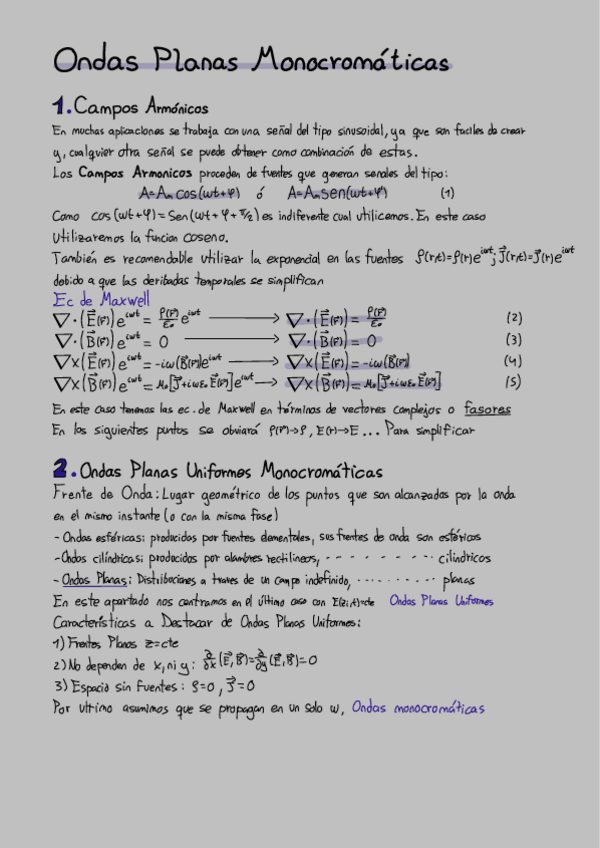 Ondas Planas Monocromáticas
1. Campos Armónicos
En muchas aplicaciones se trabaja con una señal del tipo sinusoidal, ya que son faciles de crear
y, cualquier otra señal se puede obtener como combinación de estas.
Los Campos Armonicos proceden de fuentes que generan senales del tipo:
A=Aₘcos(wt+φ) ó A=Aₘsen(wt+φ) (1)
Como cos(wt+φ)=Sen(wt+φ+π/2) es indiferente cual utilicemos. En este caso
Utilizaremos la funcion coseno.
También es recomendable utilizar la exponencial en las fuentes ρ(r,t)=ρ(r)e^{iωt}; J⃗(r,t)=J⃗(r)e^{iωt}
debido a que las deribadas temporales se simplifican
Ec de Maxwell
∇·(E⃗(r⃗))e^{iωt} = ρ(r⃗)/ε₀ e^{iωt} → ∇·(E⃗(r⃗)) = ρ(r⃗)/ε₀ (2)
∇·(B⃗(r⃗))e^{iωt} = 0 → ∇·(B⃗(r⃗)) = 0 (3)
∇x(E⃗(r⃗))e^{iωt} = -iω(B⃗(r⃗))e^{iωt} → ∇x(E⃗(r⃗)) = -iω(B⃗(r⃗)) (4)
∇x(B⃗(r⃗))e^{iωt} = μ₀[J⃗+iωε₀E⃗(r⃗)]e^{iωt} → ∇x(B⃗(r⃗)) = μ₀[J⃗+iωε₀E⃗(r⃗)] (5)
En este caso tenemos las ec. de Maxwell en términos de vectores complejos o fasores
En los siguientes puntos se obviará ρ(r⃗)→ρ, E(r)→E... Para simplificar
2. Ondas Planas Uniformes Monocromáticas
Frente de Onda: Lugar geométrico de los puntos que son alcanzados por la onda
en el mismo instante (o con la misma fase)
- Ondas esféricas: producidas por fuentes elementales, sus frentes de onda son esféricos
- Ondas cilíndricas: producidos por alambres rectilineos, - - - - - - - - cilíndricos
- Ondas Planas: Distribuciones a traves de un campo indefinido, - - - - - - - - planas
En este apartado nos centramos en el último caso con E(z,t)=cte Ondas Planas Uniformes
Características a Destacar de Ondas Planas Uniformes:
1) Frentes Planos z=cte
2) No dependen de x, ni y: ∂/∂x(E⃗,B⃗)=∂/∂y(E⃗,B⃗)=0
3) Espacio sin Fuentes: ρ=0, J⃗=0
Por ultimo asumimos que se propagan en un solo ω, Ondas monocromáticas